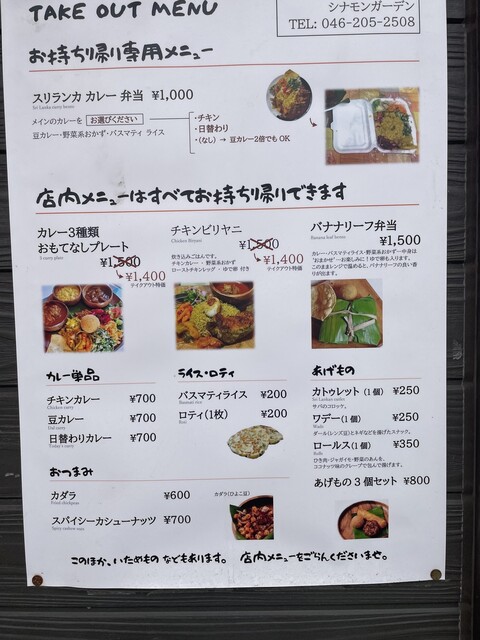 TAKE OUT MENU
シナモンガーデン
TEL: 046-205-2508
お持ち帰り専用メニュー
スリランカ カレー 弁当 ¥1,000
Sri Lanka curry bento
メインのカレーを お選びください
・チキン
・日替わり
・(なし) → 豆カレー2倍でも OK
豆カレー・野菜系おかず・バスマティ ライス
店内メニューはすべてお持ち帰りできます
カレー3種類
おもてなしプレート
3 curry plate
¥1,500
¥1,400
テイクアウト特価
チキンビリヤニ
Chicken Biryani
¥1,500
¥1,400
テイクアウト特価
炊き込みごはんです。
チキンカレー ・ 野菜系おかず
ローストチキンレッグ ・ ゆで卵 付き
バナナリーフ弁当
Banana leaf bento
¥1,500
カレー・バスマティライス・野菜系おかず…中身は
"おまかせ" …お楽しみに!ゆで卵も入ります。
このままレンジで温めると、バナナリーフの良い香
りが出ます。
カレー単品
チキンカレー ¥700
Chicken curry
豆カレー ¥700
Dal curry
日替わりカレー ¥700
Today's curry
おつまみ
カダラ ¥600
Fried chickpeas
スパイシーカシューナッツ ¥700
Spicy cashew nuts
ライス・ロティ
バスマティライス ¥200
Basmati rice
ロティ(1枚) ¥200
Roti
カダラ(ひよこ豆)
あげもの
カトゥレット (1個) ¥250
Sri Lankan cutlet
サバのコロッケ。
ワデー(1個) ¥250
Wade
ダール(レンズ豆)とネギなどを揚げたスナック。
ロールス(1個) ¥350
Rolls
ひき肉・ジャガイモ・野菜のあんを、
ココナッツ味のクレープで包んで揚げます。
あげもの3個セット ¥800
このほか、いためもの などもあります。 店内メニューをごらんくださいませ。